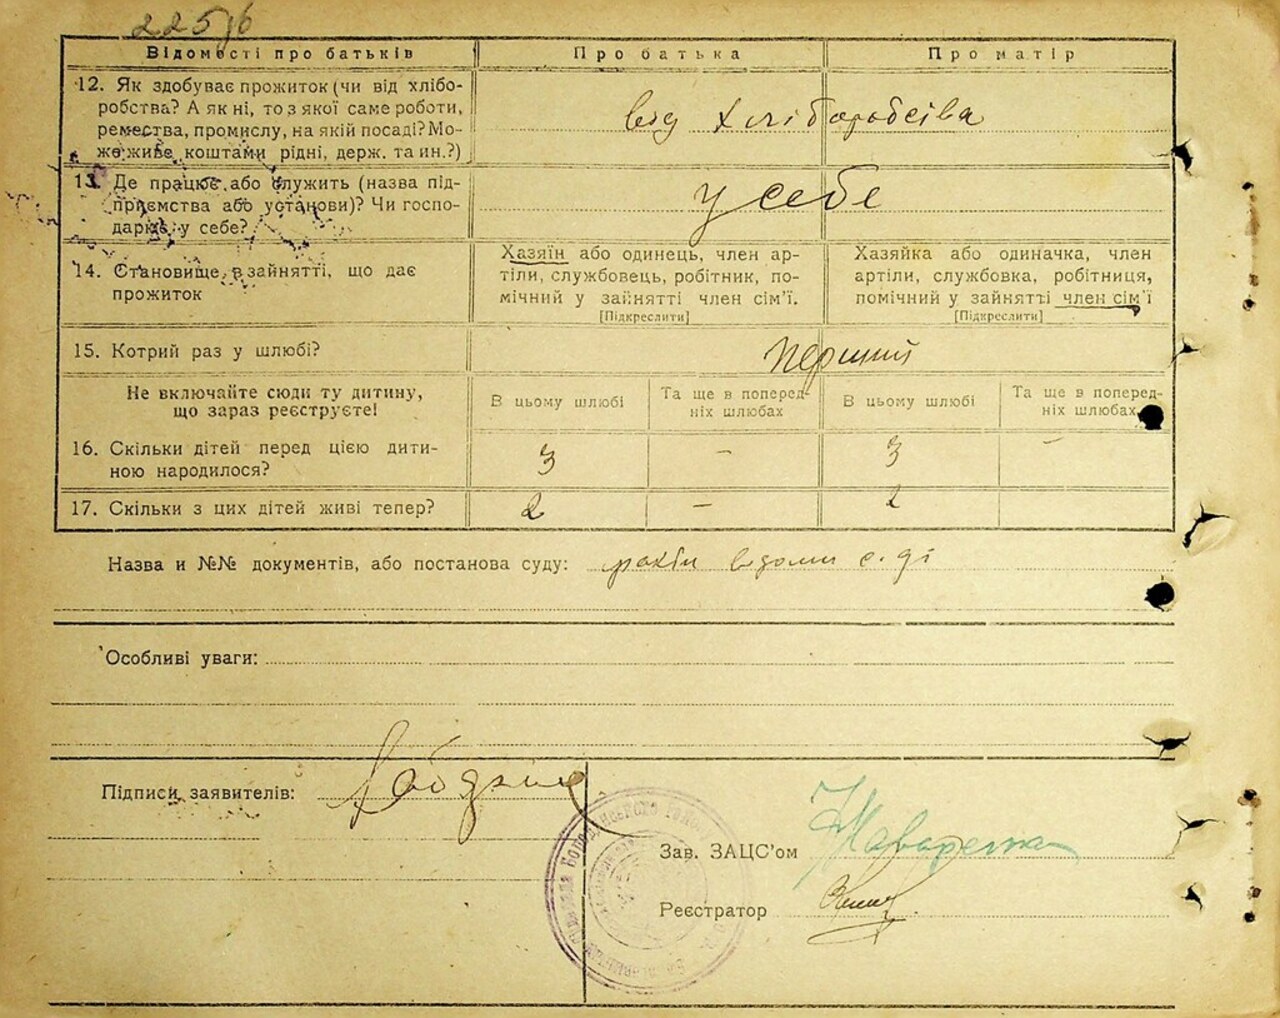 225/6
Відомості про батьків
Про батька
Про матір
12. Як здобуває прожиток (чи від хлібо-
робства? А як ні, то з якої саме роботи,
ремества, промислу, на якій посаді? Мо-
же живе коштами рідні, держ. та ин.?)
від хліборобсіва
13. Де працює або служить (назва під-
приємства або установи)? Чи госпо-
дарює у себе?
у себе
14. Становище в зайнятті, що дає
прожиток
Хазяїн або одинець, член ар-
тіли, службовець, робітник, по-
мічний у зайнятті член сім’ї.
[Підкреслити]
Хазяйка або одиначка, член
артіли, службовка, робітниця,
помічний у зайнятті член сім’ї
[Підкреслити]
15. Котрий раз у шлюбі?
перший
Не включайте сюди ту дитину,
що зараз реєструєте!
В цьому шлюбі
Та ще в поперед-
ніх шлюбах
В цьому шлюбі
Та ще в поперед-
ніх шлюбах
16. Скільки дітей перед цією дити-
ною народилося?
3 – 3 –
17. Скільки з цих дітей живі тепер?
2 – 2
Назва и №№ документів, або постанова суду:
Особливі уваги:
Підписи заявителів:
Зав. ЗАЦС’ом
Реєстратор